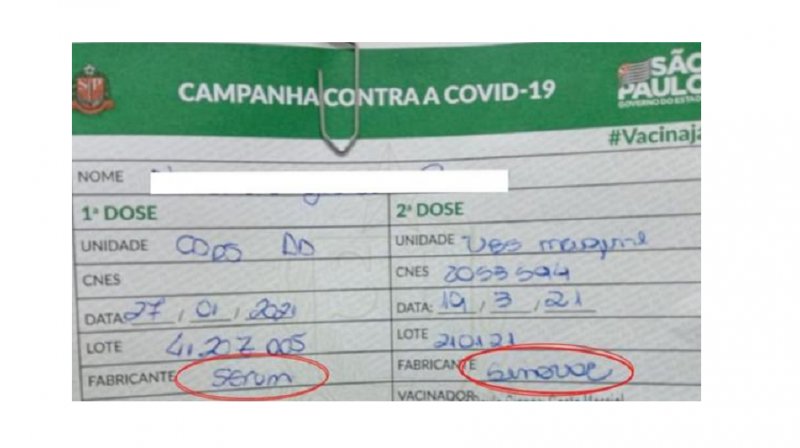 SP
CAMPANHA CONTRA A COVID-19
SÃO
PAULO
GOVERNO DO ESTADO
#Vacinaja
NOME
1ª DOSE
UNIDADE
CNES
DATA 27 / 01 / 2021
LOTE 4120Z005
FABRICANTE Serum
2ª DOSE
UNIDADE UBS
CNES
DATA: 19 / 3 / 21
LOTE 210121
FABRICANTE Sinovac
VACINADOR